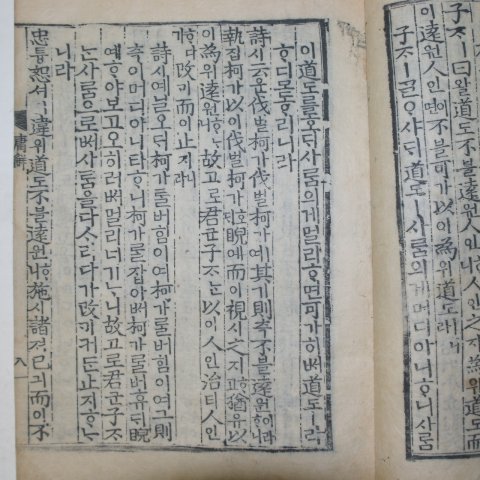 子ᄌᆞㅣ曰왈道도不블遠원人인ᄒᆞ니人인之지爲위道도而
이遠원人인이면不블可가以이爲위道도ㅣ니라
子ᄌᆞㅣᄀᆞᆯᄋᆞ샤ᄃᆡ道도ㅣ사ᄅᆞᆷ의게머디아니ᄒᆞ니사ᄅᆞᆷ
이道도를호ᄃᆡ사ᄅᆞᆷ의게멀리ᄒᆞ면可가히ᄡᅥ道도ㅣ라
ᄒᆞ디몯ᄒᆞ리니라
詩시云운伐벌柯가伐벌柯가ㅣ여其기則측不블遠원이라ᄒᆞ니
執집柯가以이伐벌柯가호ᄃᆡ睨예而이視시之지ᄒᆞ고猶유以
이爲위遠원ᄒᆞᄂᆞ니故고로君군子ᄌᆞᄂᆞᆫ以이人인治티人인
ᄒᆞ다가改ᄀᆡ而이止지니라
詩시예닐오ᄃᆡ柯가ᄅᆞᆯ버힘이여柯가ᄅᆞᆯ버힘이여그則
측이머디아니타ᄒᆞ니柯가ᄅᆞᆯ잡아ᄡᅥ柯가ᄅᆞᆯ버휴ᄃᆡ睨
예ᄒᆞ야보고오히려ᄡᅥ멀리너기ᄂᆞ니故고로君군子ᄌᆞ
ᄂᆞᆫ사ᄅᆞᆷ으로ᄡᅥ사ᄅᆞᆷ을다ᄉᆞ리다가改ᄀᆡ커든止지ᄒᆞᄂᆞ
니라
忠튱恕셔ㅣ違위道도不블遠원ᄒᆞ니施시諸져己긔而이不
庸解 八